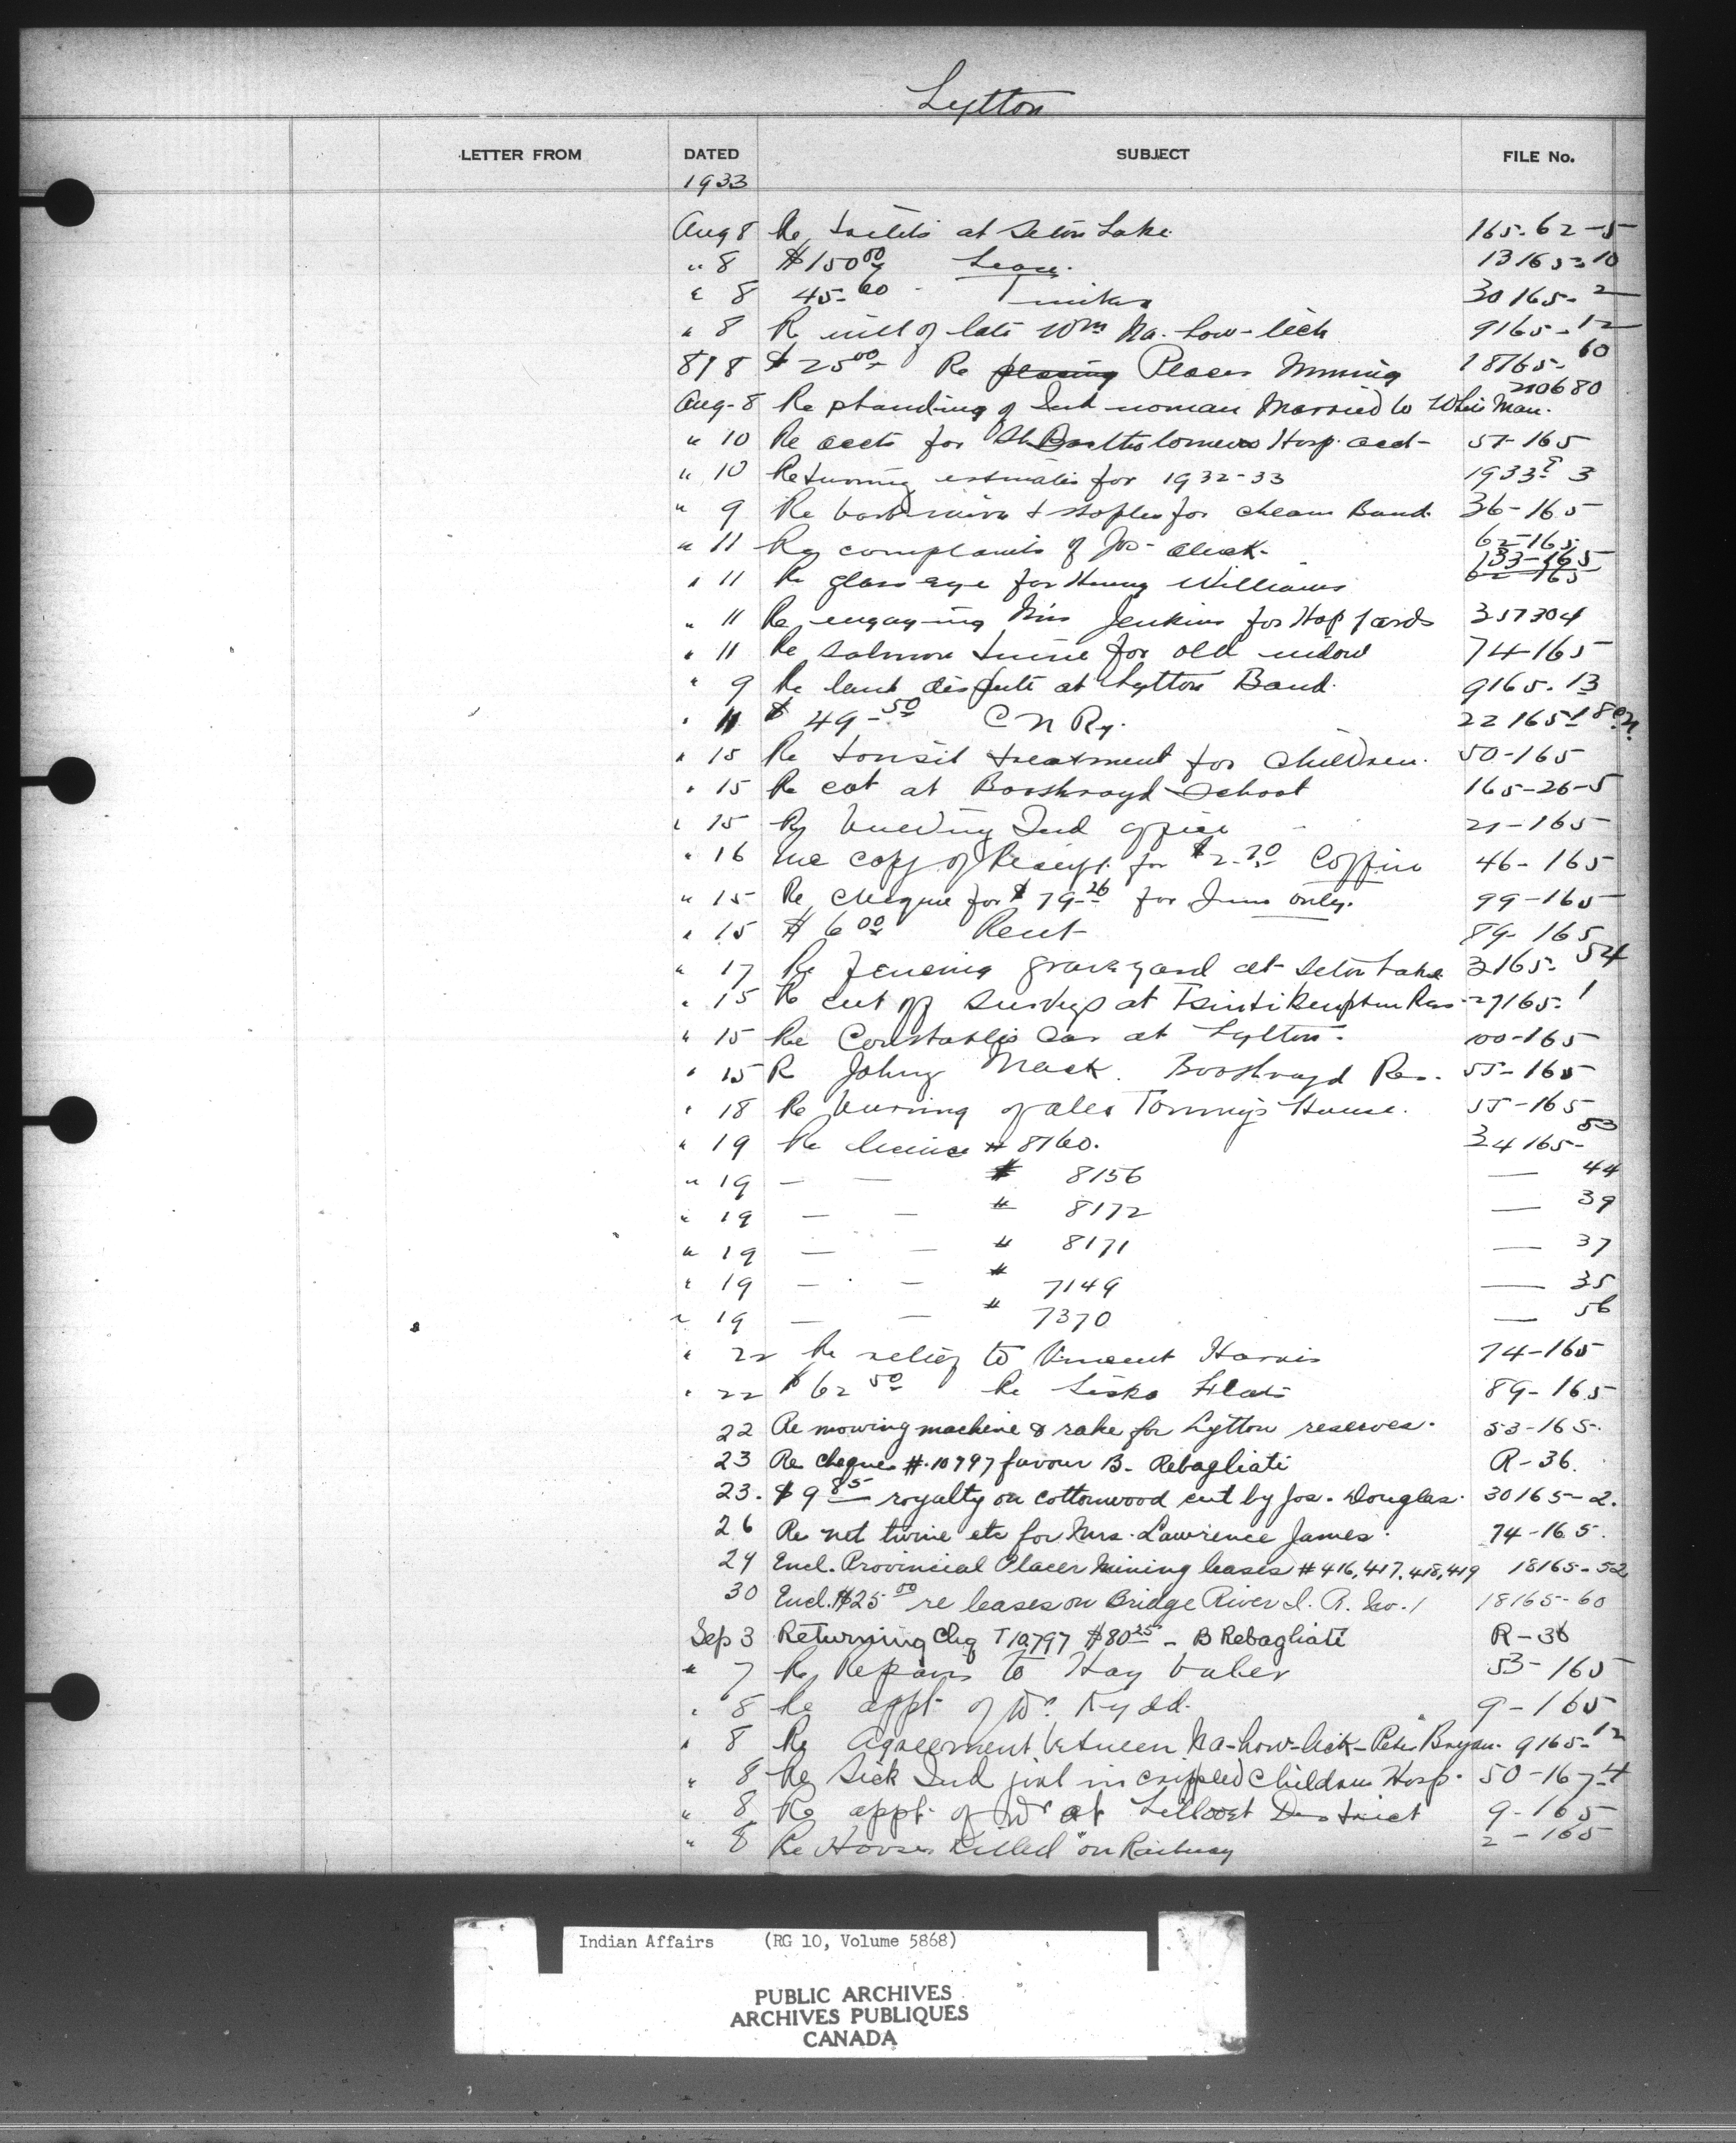 Lytton
LETTER FROM DATED SUBJECT FILE No.
1933
Aug 8 Re at Seton Lake 165-62-5
" 8 $150 00 Lease. 13165-10
" 8 45.60 - Timber 30165-2
" 8 R will of late Wm Na-how-lick 9165-12
8/8 $25 00 Re Placer Mining 18165-60
Aug-8 Re standing of Ind woman Married to White Man. 210680
" 10 Re accts for St Bartholomews Hosp. acct- 57-165
" 10 Returning estimates for 1932-33 1933 3
" 9 Re barb wire & staples for Cheam Band. 36-165
" 11 Re complaints of Jos- 62-165
" 11 Re glass eye for Henry Williams 133-165
62-165
" 11 Re engaging Miss Jenkins for Hop Yards 357304
" 11 Re Salmon twine for old widow 74-165
" 9 Re land dispute at Lytton Band. 9165-13
" 11 $ 49-50 C N Ry. 22165-18
" 15 Re tonsil treatment for Children. 50-165
" 15 Re cot at Boothroyd School 165-26-5
" 15 Re Ind office 21-165
" 16 copy of Receipt for Coffin 46-165
" 15 Re Cheque for $79-26 for June only. 99-165
" 15 $6 00 Rent 89-165
" 17 Re fencing graveyard at Seton Lake 3165-54
" 15 Re cut off Surveys at 29165-1
" 15 Re Constables Car at Lytton - 100-165
" 15 R Johny Mack. Boothroyd Res. 55-165
" 18 Re burning of Tommy's House. 55-165
" 19 Re licence # 8160. 34165-53
" 19 — — # 8156 — 44
" 19 — — # 8172 — 39
" 19 — — # 8171 — 37
" 19 — — # 7149 — 35
" 19 — — # 7370 — 56
" 22 Re relief to Vincent Harris 74-165
" 22 $62 50 Re Flats 89-165
22 Re mowing machine & rake for Lytton reserves. 53-165.
23 Re cheque #.10797 favour B. Rebagliati R-36.
23. $9 85 royalty on cottonwood cut by Jos. Douglas. 30165-2.
26 Re net twine etc for Mrs. Lawrence James. 74-165.
29 Encl. Provincial Placer Mining leases # 416, 417, 418, 419 18165-52
30 Encl. $25 00 re leases on Bridge River I. R. No. 1 18165-60
Sep 3 Returning Chq T 10797 $80 25 - B Rebagliati R-36
" 7 Re Repairs to Hay baler 53-165
" 8 Re appt of Dr. Kydd. 9-165
" 8 Re Agreement between Na-how-lick - Peter Bryan. 9165-12
" 8 Re Sick Ind girl in crippled Childrens Hosp. 50-167-4
" 8 Re appt. of Dr at Lillooet District 9-165
" 8 Re Horses killed on Railway 2-165
Indian Affairs (RG 10, Volume 5868)
PUBLIC ARCHIVES
ARCHIVES PUBLIQUES
CANADA